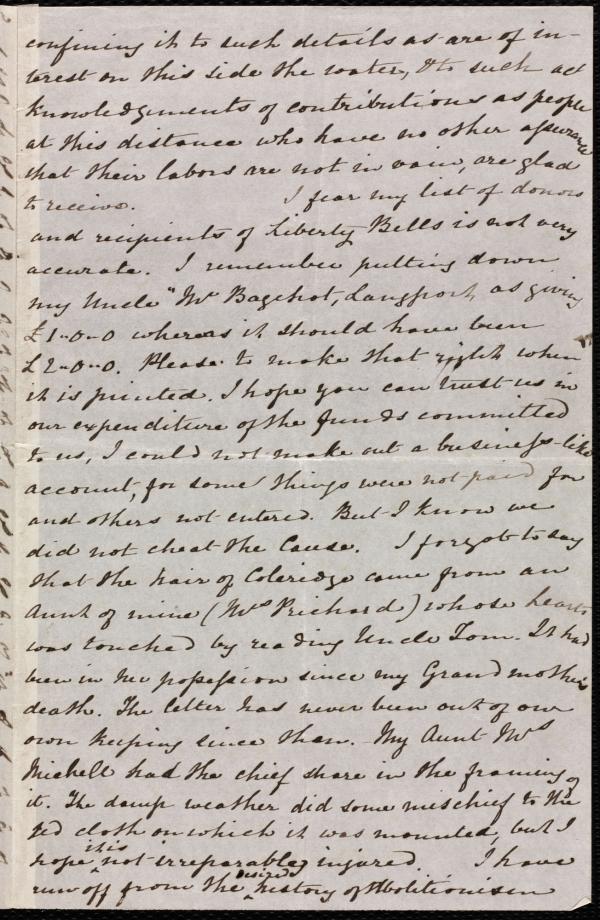 confining it to such details as are of in-
terest on this side the water, & to such ac
knowledgements of contributions as people
at this distance who have no other assurance
that their labors are not in vain, are glad
to receive. I fear my list of donors
and recipients of Liberty Bells is not very
accurate. I remember putting down
my Uncle "Mr Bagehot, Langport, as giving
£1-0-0 whereas it should have been
£2-0-0. Please to make that right when
it is printed. I hope you can trust us in
our expenditure of the funds committed
to us, I could not make out a business-like
account, for some things were not paid for
and others not entered. But I know we
did not cheat the Cause. I forgot to say
that the hair of Coleridge came from an
Aunt of mine (Mrs Prichard) whose heart
was touched by reading Uncle Tom. It had
been in her possession since my Grandmother's
death. The letter has never been out of our
own keeping since then. My Aunt Mrs
Michell had the chief share in the framing of
it. The damp weather did some mischief to the
red cloth on which it was mounted, but I
hope it is not irreparably injured. I have
run off from the desired history of Abolitionism